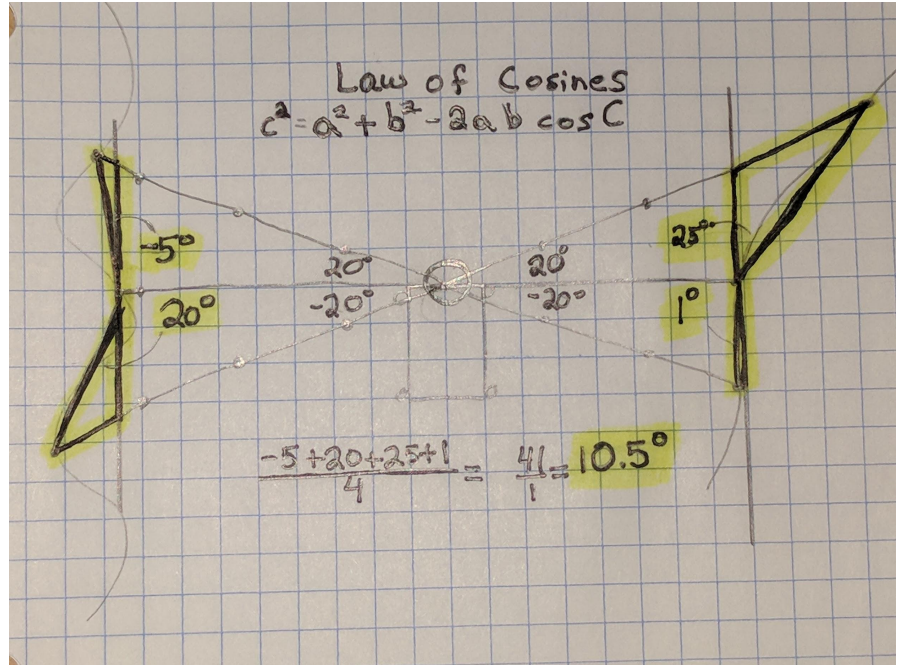 Law of Cosines
c²=a²+b²-2ab cosC
-5°
20°
20°
25°
20°
-20°
-20°
1°
-5+20+25+1
4
=
41
1
=
10.5°